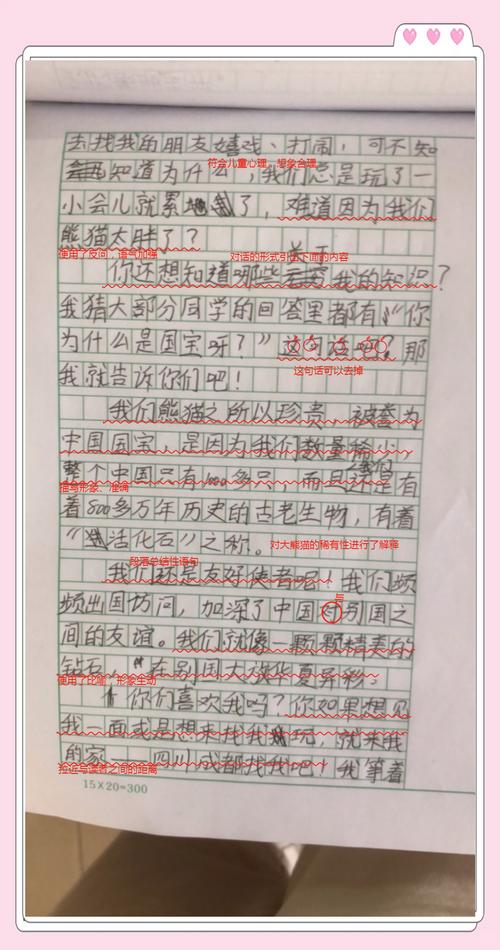 去找我的朋友嬉戏、打闹，可不知
符合儿童心理，想象合理
知道为什么，我们总是玩了一
小会儿就累了，难道因为我们
熊猫太胖了？
使用了反问，语气加强
关于
对话的形式引出下面的内容
你还想知道哪些我的知识？
我猜大部分同学的回答里都有“你
为什么是国宝呀？”这句话吧？那
我就告诉你们吧！
这句话可以去掉
我们熊猫之所以珍贵，被誉为
中国国宝，是因为我们数量稀少，
整个中国只有1000多只，而且还是有
描写形象、准确
着800多万年历史的古老生物，有着
“活化石”之称。
对大熊猫的稀有性进行了解释
段落总结性语句
我们还是友好使者呢！我们频
频出国访问，加深了中国对别国之
与
间的友谊。我们就像一颗颗精美的
钻石，在别国大放华夏异彩。
使用了比喻，形象生动
你们喜欢我吗？你如果想见
我一面或是想来找我玩，就来我
的家——四川成都找我吧！我等着
拉近与读者之间的距离
15×20=300